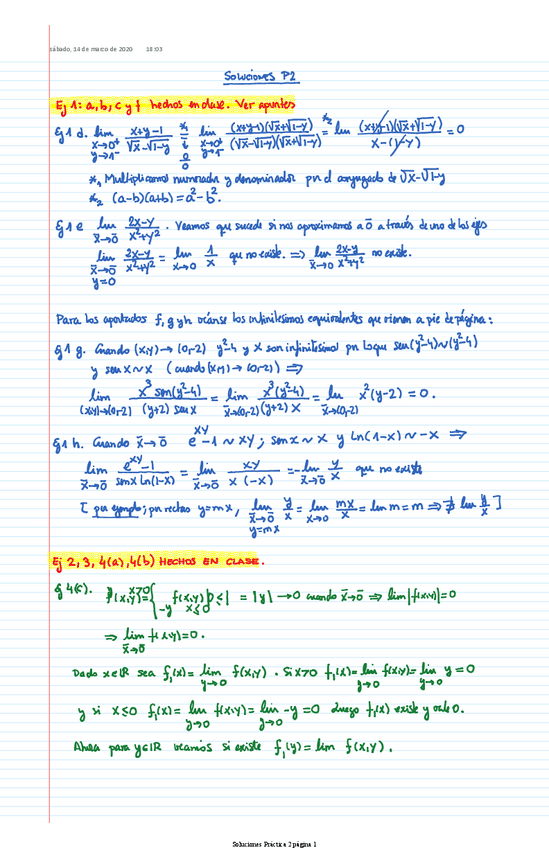 sábado, 14 de marzo de 2020 18:03
Soluciones P2
Ej 1: a, b, c y f hechos en clase. Ver apuntes
Ej 1 d. lim x→0⁺ y→1⁻ (x+y-1)/(√x-√(1-y)) = *₁ 0/0 lim x→0⁺ y→1⁻ (x+y-1)(√x+√(1-y))/((√x-√(1-y))(√x+√(1-y))) = *₂ lim (x+y-1)(√x+√(1-y))/(x-(1-y)) = 0
*₁ Multiplicamos numerador y denominador por el conjugado de √x-√(1-y)
*₂ (a-b)(a+b) = a²-b².
Ej 1 e lim x̄→0̄ (2x-y)/(x²+y²). Veamos que sucede si nos aproximamos a 0̄ a través de uno de los ejes
lim x̄→0̄ y=0 (2x-y)/(x²+y²) = lim x→0 1/x que no existe. ⇒ lim x̄→0 (2x-y)/(x²+y²) no existe.
Para los apartados f, g y h úsense los infinitésimos equivalentes que vienen a pie de página:
Ej 1 g. Cuando (x,y)→(0,-2) y²-4 y x son infinitésimos por lo que sen(y²-4)~(y²-4)
y sen x ~ x (cuando (x,y)→(0,-2)) ⇒
lim (x,y)→(0,-2) x³ sen(y²-4)/((y+2) sen x) = lim x̄→(0,-2) x³(y²-4)/((y+2) x) = lim x̄→(0,-2) x²(y-2) = 0.
Ej 1 h. Cuando x̄→0̄ e^xy -1 ~ xy; sen x ~ x y ln(1-x) ~ -x ⇒
lim x̄→0̄ (e^xy -1)/(sen x ln(1-x)) = lim x̄→0̄ xy/(x (-x)) = -lim x̄→0̄ y/x que no existe
[por ejemplo; por rectas y=mx, lim x̄→0̄ y=mx y/x = lim x→0 mx/x = lim m = m ⇒ ∄ lim y/x]
Ej 2, 3, 4(a), 4(b) HECHOS EN CLASE.
Ej 4(c). f(x,y)={ y x>0 -y x≤0 |f(x,y)| = |y| → 0 cuando x̄→0̄ ⇒ lim|f(x,y)|=0
⇒ lim x̄→0̄ f(x,y)=0.
Dado x∈ℝ sea f₁(x) = lim y→0 f(x,y). Si x>0 f₁(x)= lim y→0 f(x,y)= lim y→0 y = 0
y si x≤0 f₁(x)= lim y→0 f(x,y)= lim y→0 -y = 0 Luego f₁(x) existe y vale 0.
Ahora para y∈ℝ veamos si existe f₂(y)= lim f(x,y).
Soluciones Práctica 2 página 1